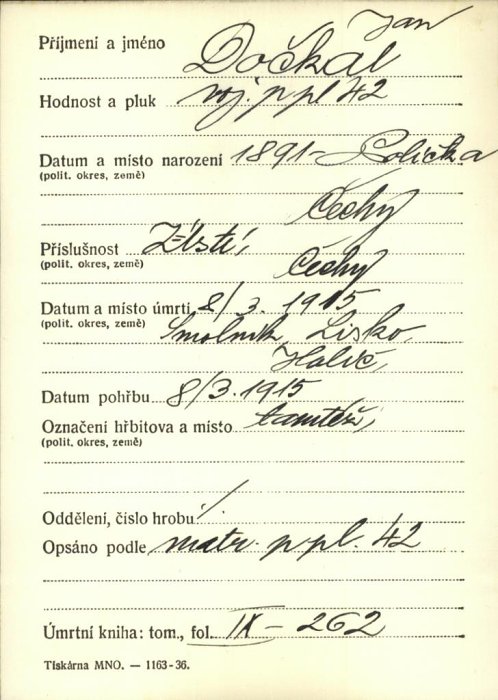 Jan
Příjmení a jméno Dočkal
Hodnost a pluk voj. ppl 42
Datum a místo narození 1891 - Polička
(polit. okres, země)
Čechy
Příslušnost
(polit. okres, země) Čechy
Datum a místo úmrtí 8/3. 1915
(polit. okres, země) Smolnik, Lisko,
Halič,
Datum pohřbu 8/3. 1915
Označení hřbitova a místo tamtéž,
(polit. okres, země)
Oddělení, číslo hrobu /
Opsáno podle matr. ppl. 42
Úmrtní kniha: tom., fol. IX - 262
Tiskárna MNO. — 1163-36.